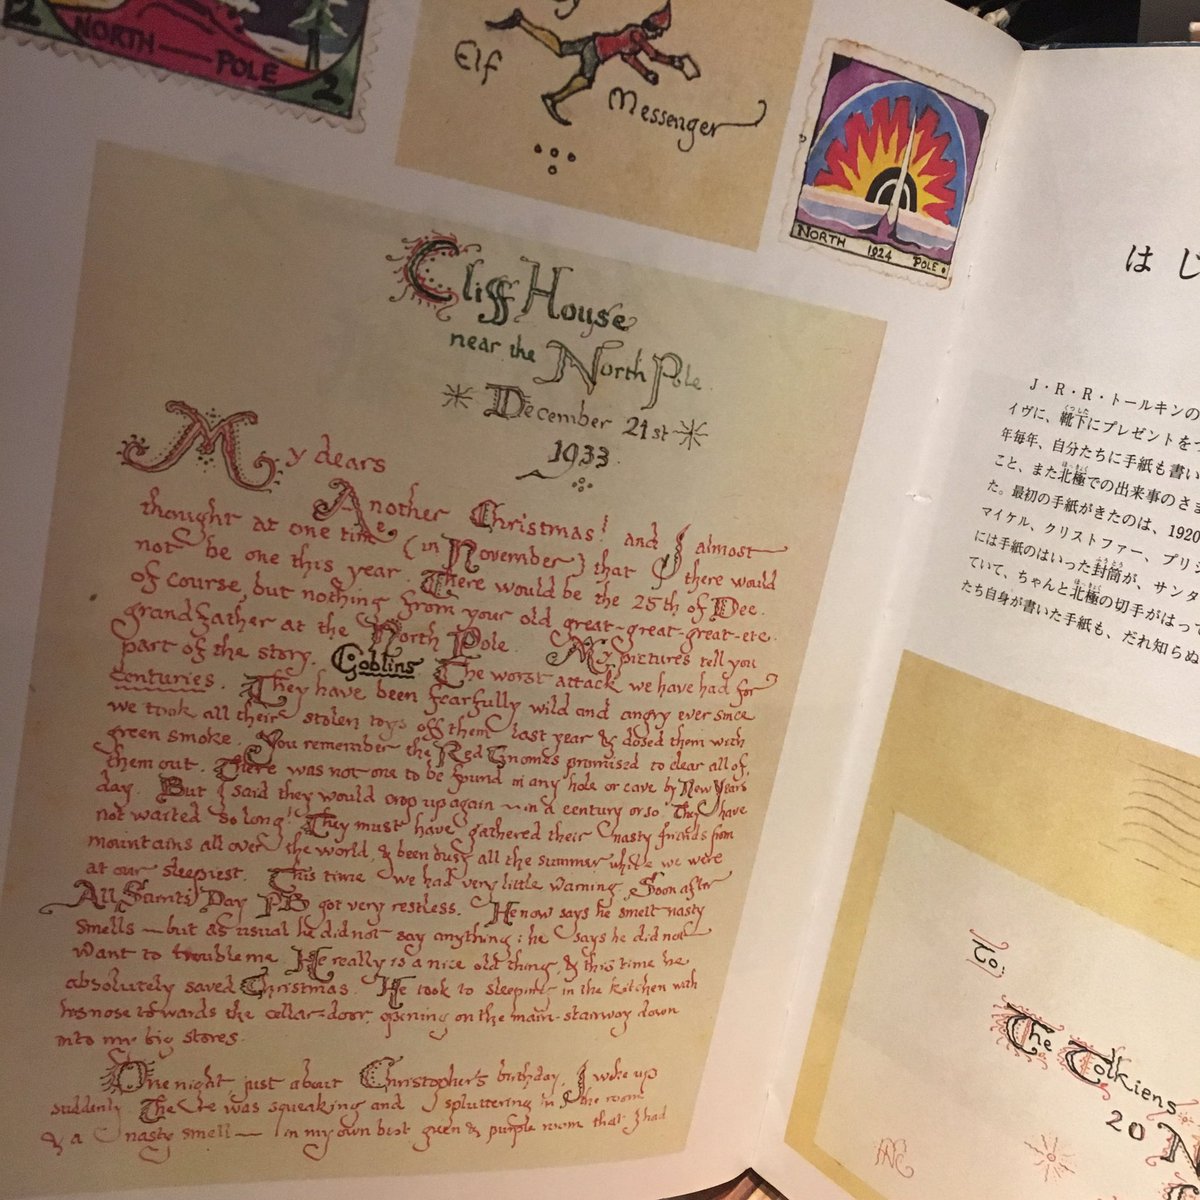 2 NORTH — POLE 2
Elf
Messenger
NORTH 1924 POLE
Cliff House
near the North Pole
December 21st
1933
My dears
Another Christmas! and I almost
thought at one time (in November) that there would
not be one this year. There would be the 25th of Dec.
of course, but nothing from your old great-great-great-etc.
grandfather at the North Pole. My pictures tell you
part of the story. Goblins. The worst attack we have had for
centuries. They have been fearfully wild and angry ever since
we took all their stolen toys off them last year & dosed them with
green smoke. You remember the Red Gnomes promised to clear all of
them out. There was not one to be found in any hole or cave by New Years
day. But I said they would crop up again — in a century or so. They have
not waited so long! They must have gathered their nasty friends from
mountains all over the world, & been busy all the summer while we were
at our sleepiest. This time we had very little warning. Soon after
All Saints' Day PB got very restless. He now says he smelt nasty
smells — but as usual he did not say anything: he says he did not
want to trouble me. He really is a nice old thing, & this time he
absolutely saved Christmas. He took to sleeping in the kitchen with
his nose towards the cellar-door, opening on the main-stairway down
into my big stores.
One night just about Christopher's birthday, I woke up
suddenly. There was squeaking and spluttering in the room
& a nasty smell — in my own best green & purple room that I had
はじ
J・R・R・トールキンの
イヴに、靴下にプレゼントをつ
年毎年、自分たちに手紙も書い
こと、また北極での出来事のさま
た。最初の手紙がきたのは、1920
マイケル、クリストファー、プリシ
には手紙のはいった封筒が、サンタ
ていて、ちゃんと北極の切手がはって
たち自身が書いた手紙も、だれ知らぬ
To:
The Tolkiens
20 N